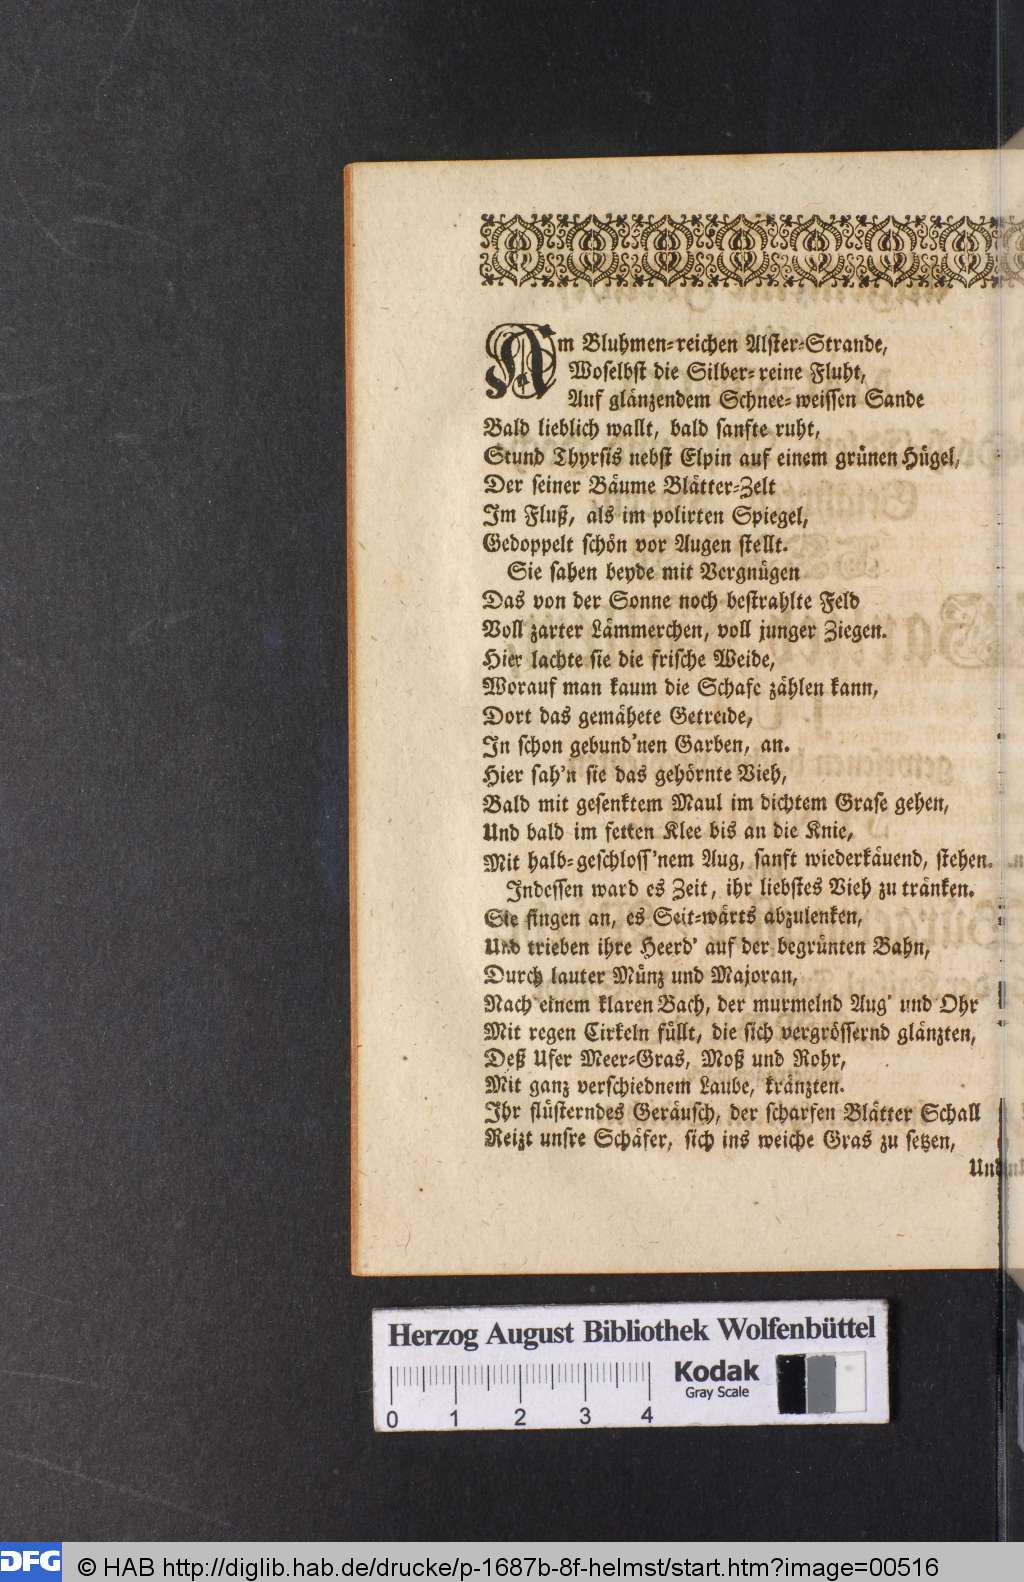 Am Bluhmen-reichen Alster-Strande,
Woselbst die Silber-reine Fluht,
Auf glänzendem Schnee-weissen Sande
Bald lieblich wallt, bald sanfte ruht,
Stund Thyrsis nebst Elpin auf einem grünen Hügel,
Der seiner Bäume Blätter-Zelt
Im Fluß, als im polirten Spiegel,
Gedoppelt schön vor Augen stellt.
Sie sahen beyde mit Vergnügen
Das von der Sonne noch bestrahlte Feld
Voll zarter Lämmerchen, voll junger Ziegen.
Hier lachte sie die frische Weide,
Worauf man kaum die Schafe zählen kann,
Dort das gemähete Getreide,
In schon gebund'nen Garben, an.
Hier sah'n sie das gehörnte Vieh,
Bald mit gesenktem Maul im dichtem Grase gehen,
Und bald im fetten Klee bis an die Knie,
Mit halb-geschloss'nem Aug, sanft wiederkäuend, stehen.
Indessen ward es Zeit, ihr liebstes Vieh zu tränken.
Sie fingen an, es Seit-wärts abzulenken,
Und trieben ihre Heerd' auf der begrünten Bahn,
Durch lauter Münz und Majoran,
Nach einem klaren Bach, der murmelnd Aug' und Ohr
Mit regen Cirkeln füllt, die sich vergrössernd glänzten,
Deß Ufer Meer-Gras, Moß und Rohr,
Mit ganz verschiednem Laube, kränzten.
Ihr flüsterndes Geräusch, der scharfen Blätter Schall
Reizt unsre Schäfer, sich ins weiche Gras zu setzen,
Und
Herzog August Bibliothek Wolfenbüttel
Kodak
Gray Scale
0 1 2 3 4
DFG © HAB http://diglib.hab.de/drucke/p-1687b-8f-helmst/start.htm?image=00516